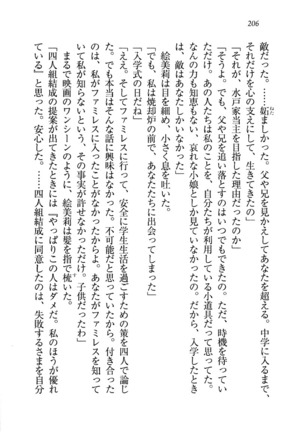 206
敵だった。……妬ましかった。父や兄を見かえしてあなたを超える。中学に入って、
それだけを心の支えにして、生きてきたの」
「それが、水戸家当主を目指した理由だったのか」
「そうよ。でも、父や兄を追い落とすのはいつでもできたの。ただ、時機を待って
ただけ。あの人たちは私のことを、自分たちが利用している小道具だって思ってた。
なんの力も知恵もない、哀れな小娘としか見ていなかったの。だから、入学したとき
は、敵はあなたしかいなかった」
絵美莉は肩を縮め、小さく息を吐いた。
「でも、私は焼却炉の前で、あなたたちに出会ってしまった」
「入学式の日だね」
「ええ。そしてファミレスに行って、安全に学生生活を過ごすための策を四人で論じ
た。でも本当はそんな話に興味はなかった。不可能だと思っていたから。付き合った
のは、私がファミレスに入ったことがなかったからよ。あなたがファミレスを知って
いて私が知らないという、その事実が許せなかっただけ。子供だったわ」
まるで映画のワンシーンのように、絵美莉は髪を指で梳いた。
「四人組結成の提案が出てきたときには『やっぱりこの人はダメだ。私のほうが優れ
ている』と思った。安心した。……四人組結成に同意したのは、失敗するさまを自分